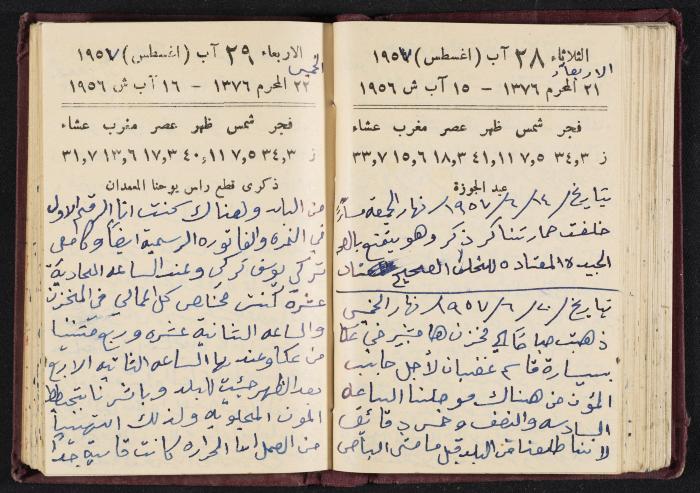 الثلاثاء ٢٨ آب (اغسطس) ١٩٥٧
الاربعاء
٢١ المحرم ١٣٧٦ - ١٥ آب ش ١٩٥٦
فجر شمس ظهر عصر مغرب عشاء
ز ٣٤,٣ ٧,٥ ٤١,١١ ١٨,٣ ١٥,٦ ٣٣,٧
عيد الجوزة
بتاريخ / ١٤ / ٦ / ١٩٥٧ / نهار الجمعة
خلفت حمارتنا كر ذكر وهو يتمتع
الجيدة المعتادة
بتاريخ / ٢٠ / ٦ / ١٩٥٧ / نهار الخميس
ذهبت صباحا الى مخزن في عكا
بسيارة قاسم غضبان لأجل جلب
المؤن من هناك فوصلنا الساعه
السادسه والنصف وخمس دقائق
لأننا طلعنا من البلد قبل ما مشى الباص
الاربعاء ٢٩ آب (اغسطس) ١٩٥٧
الخميس
٢٢ المحرم ١٣٧٦ - ١٦ آب ش ١٩٥٦
فجر شمس ظهر عصر مغرب عشاء
ز ٣٤,٣ ٧,٥ ٤٠,١١ ١٧,٣ ١٣,٦ ٣١,٧
ذكرى قطع راس يوحنا المعمدان
من البلد وهناك كنت انا الرقم الاول
في النمرة والفاتوره الرسمية ايضا وكان معي
تركي يوسف تركي وعند الساعه الحادية
عشرة كنت مخلص كل اعمالي في المخزن
والساعه الثانية عشره وربع مشينا
من عكا وعند الساعه الثانيه الا ربع
بعد الظهر جئت للبلد وباشرنا بتحطيط
المون المحلويه وكذلك انتهينا
من العمل اما الحراره كانت قاسية جدا